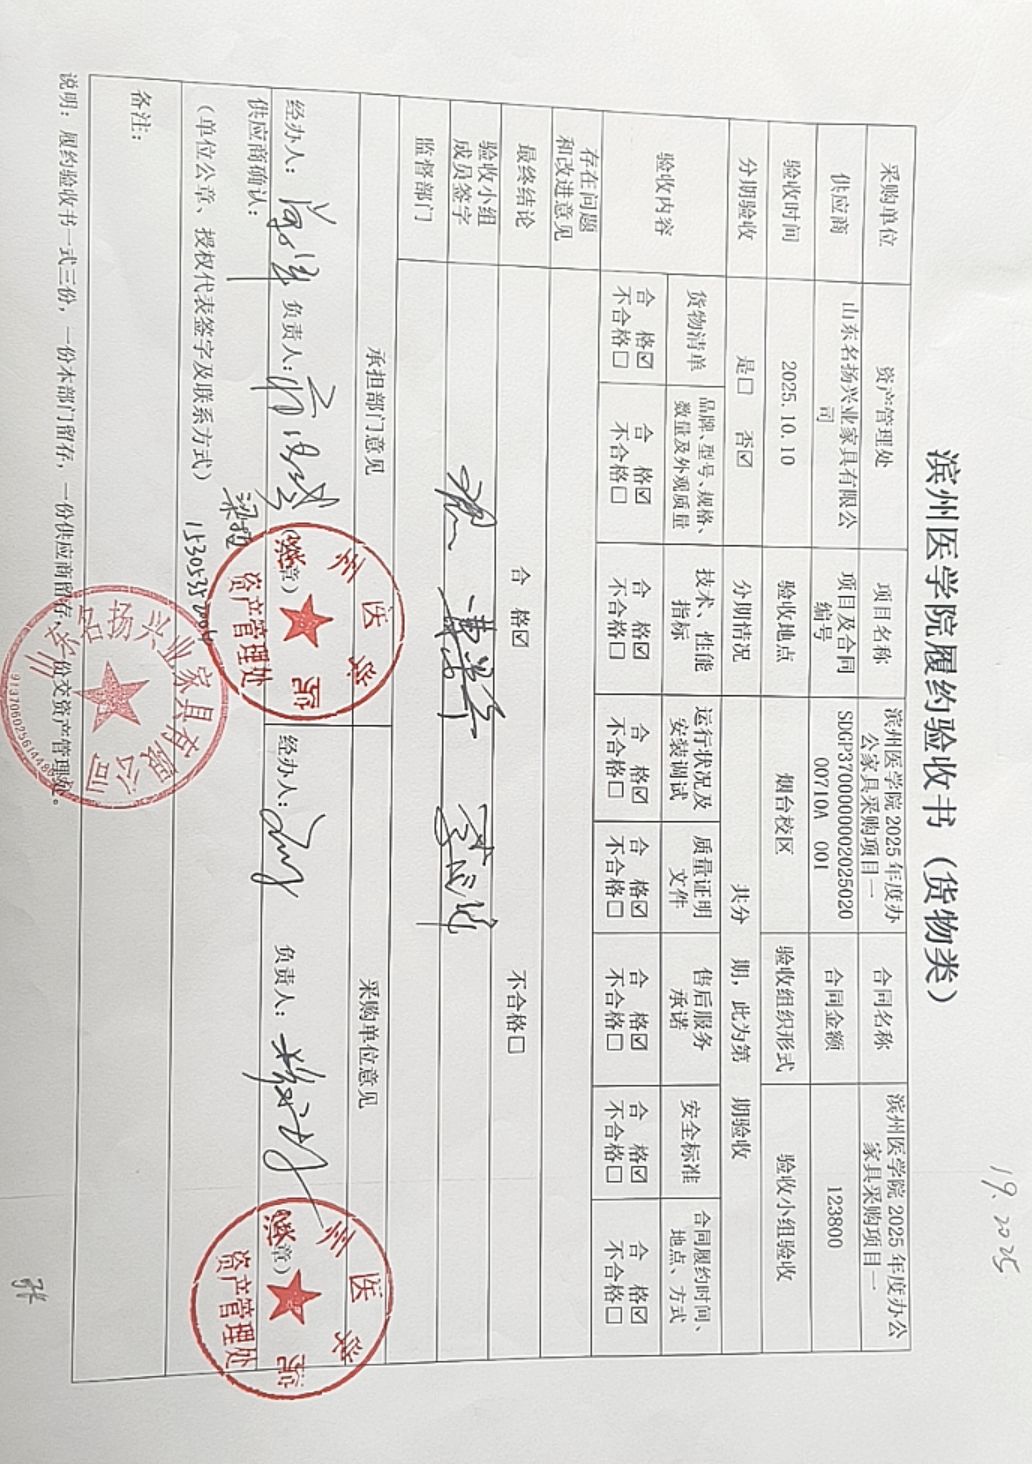 19.2025
滨州医学院履约验收书（货物类）
采购单位 资产管理处 项目名称 滨州医学院 2025 年度办公家具采购项目一 合同名称 滨州医学院 2025 年度办公家具采购项目一
供应商 山东名扬兴业家具有限公司 项目及合同编号 SDGP370000000202502000710A 001 合同金额 123800
验收时间 2025.10.10 验收地点 烟台校区 验收组织形式 验收小组验收
分期验收 是□ 否☑ 分期情况 共分 期，此为第 期验收
验收内容 货物清单 品牌、型号、规格、数量及外观质量 技术、性能指标 运行状况及安装调试 质量证明文件 售后服务承诺 安全标准 合同履约时间、地点、方式
合 格☑ 合 格☑ 合 格☑ 合 格☑ 合 格☑ 合 格☑ 合 格☑ 合 格☑
不合格□ 不合格□ 不合格□ 不合格□ 不合格□ 不合格□ 不合格□ 不合格□
存在问题和改进意见
最终结论 合 格☑ 不合格□
验收小组成员签字
监督部门
承担部门意见 采购单位意见
经办人： 负责人： 章） 经办人： 负责人： 章）
滨州医学院
资产管理处
滨州医学院
资产管理处
供应商确认：
（单位公章、授权代表签字及联系方式）
山东名扬兴业家具有限公司
备注：
说明：履约验收书一式三份，一份本部门留存，一份供应商留存，一份交资产管理处。